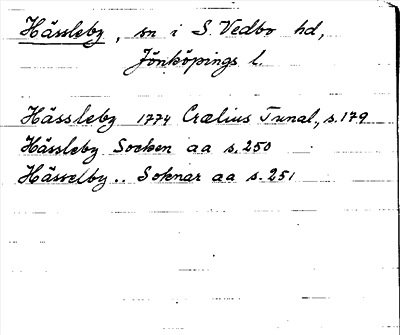 Hässleby, sn i S. Vedbo hd,
Jönköpings l.
Hässleby 1774 Crælius Tunal, s. 179
Hässleby Socken aa s. 250
Hässelby .. Soknar aa s. 251